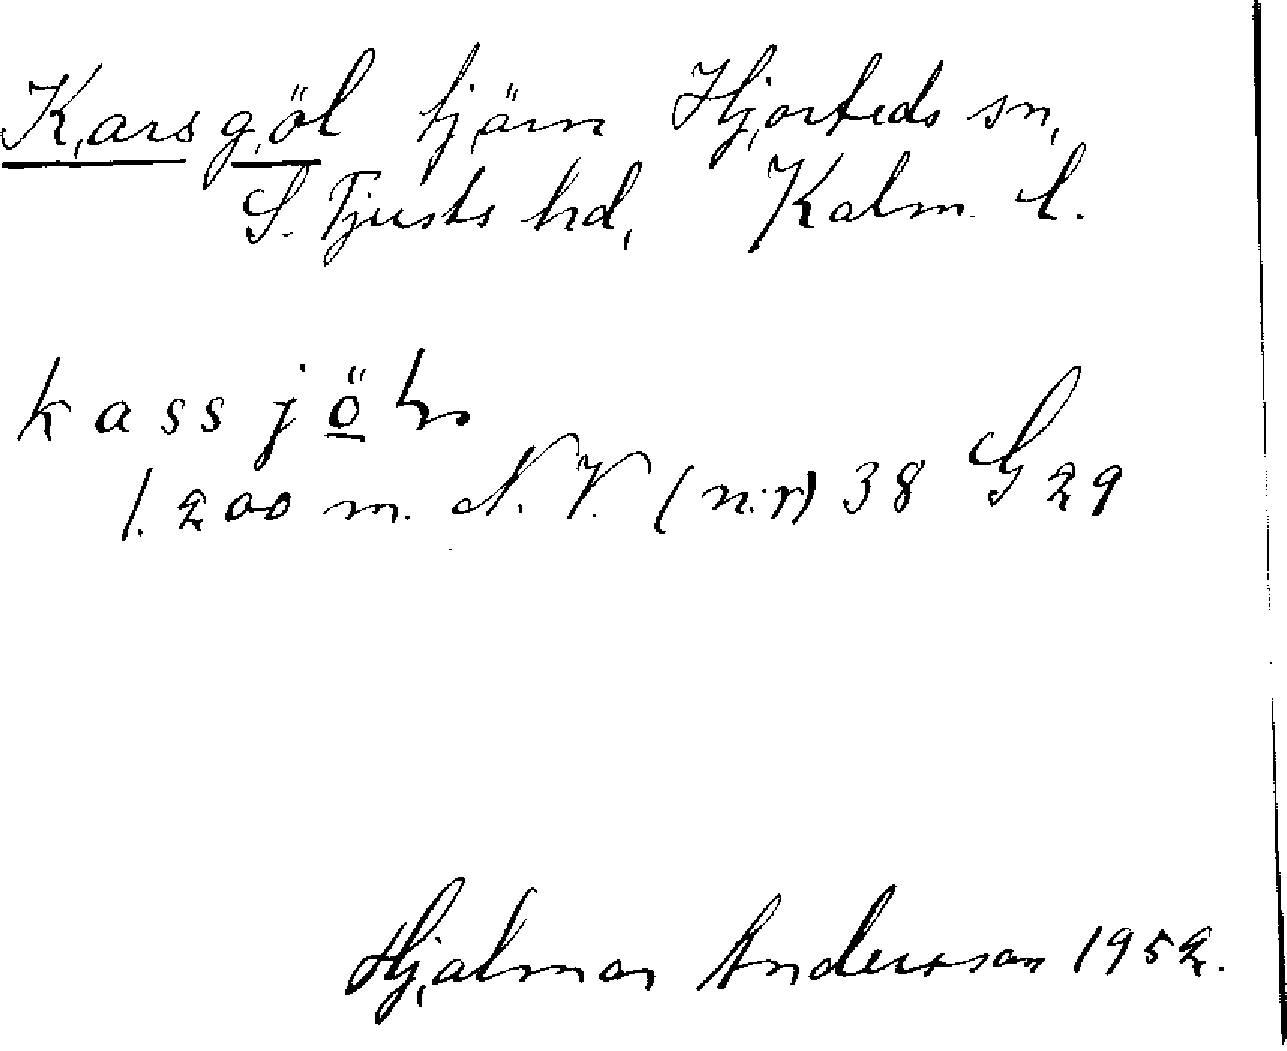 Karsgöl tjärn Hjorteds sn,
S. Tjusts hd, Kalm. l.
kassjö
1.200 m. N.V. (n:r) 38 G 29
Hjalmar Andersson 1952.